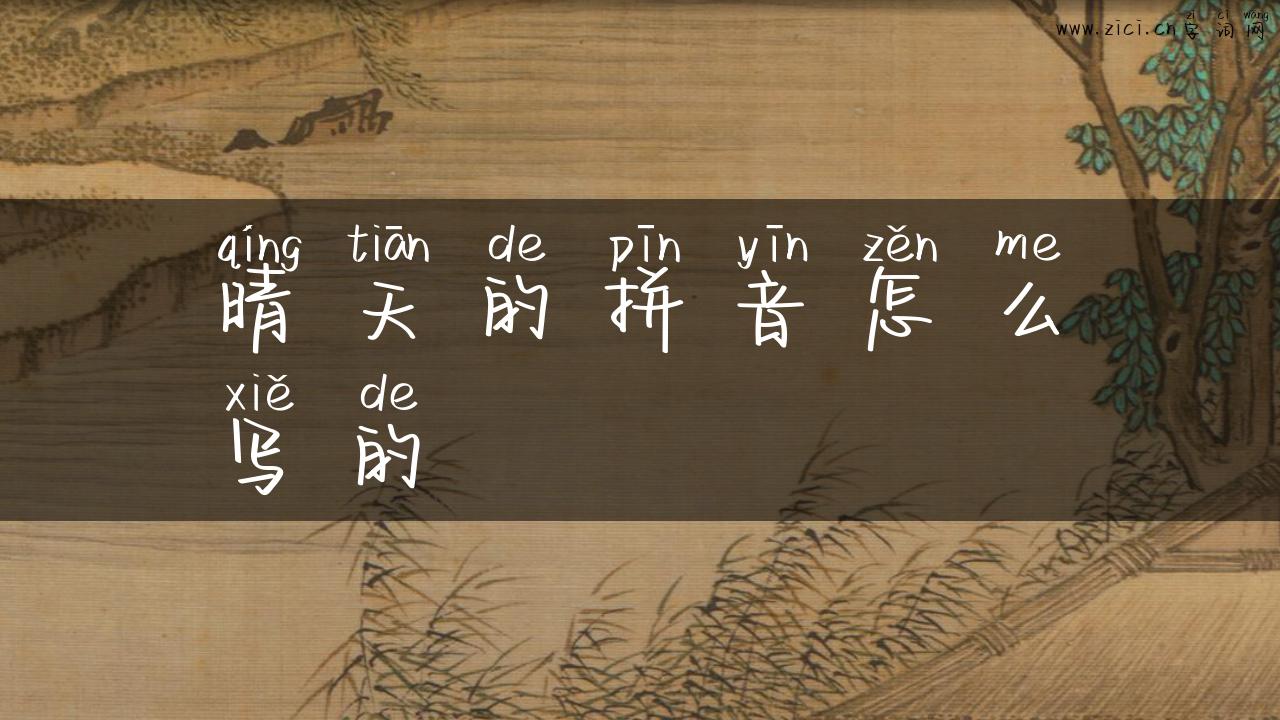 zì cí wǎng
www.zici.cn字词网
qíng tiān de pīn yīn zěn me
晴天的拼音怎么
xiě de
写的